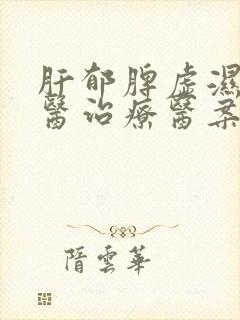 肝郁脾虚濕
醫治療醫案
隋雲華